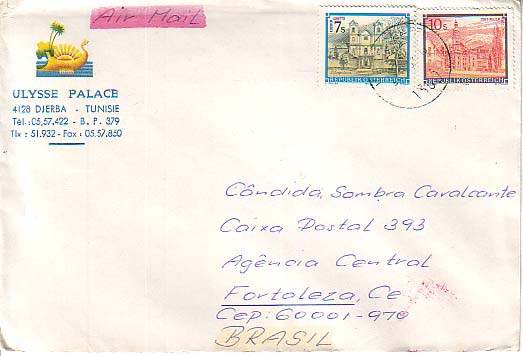 Air Mail
7 S
REPUBLIK ÖSTERREICH
10 S
REPUBLIK ÖSTERREICH
ULYSSE PALACE
4128 DJERBA - TUNISIE
Tél.:05,57.422 - B. P. 379
Tlx : 51.932 - Fax : 05.57.850
Cândida Sombra Cavalcante
Caixa Postal 393
Agência Central
Fortaleza, Ce
Cep: 60001-970
BRASIL